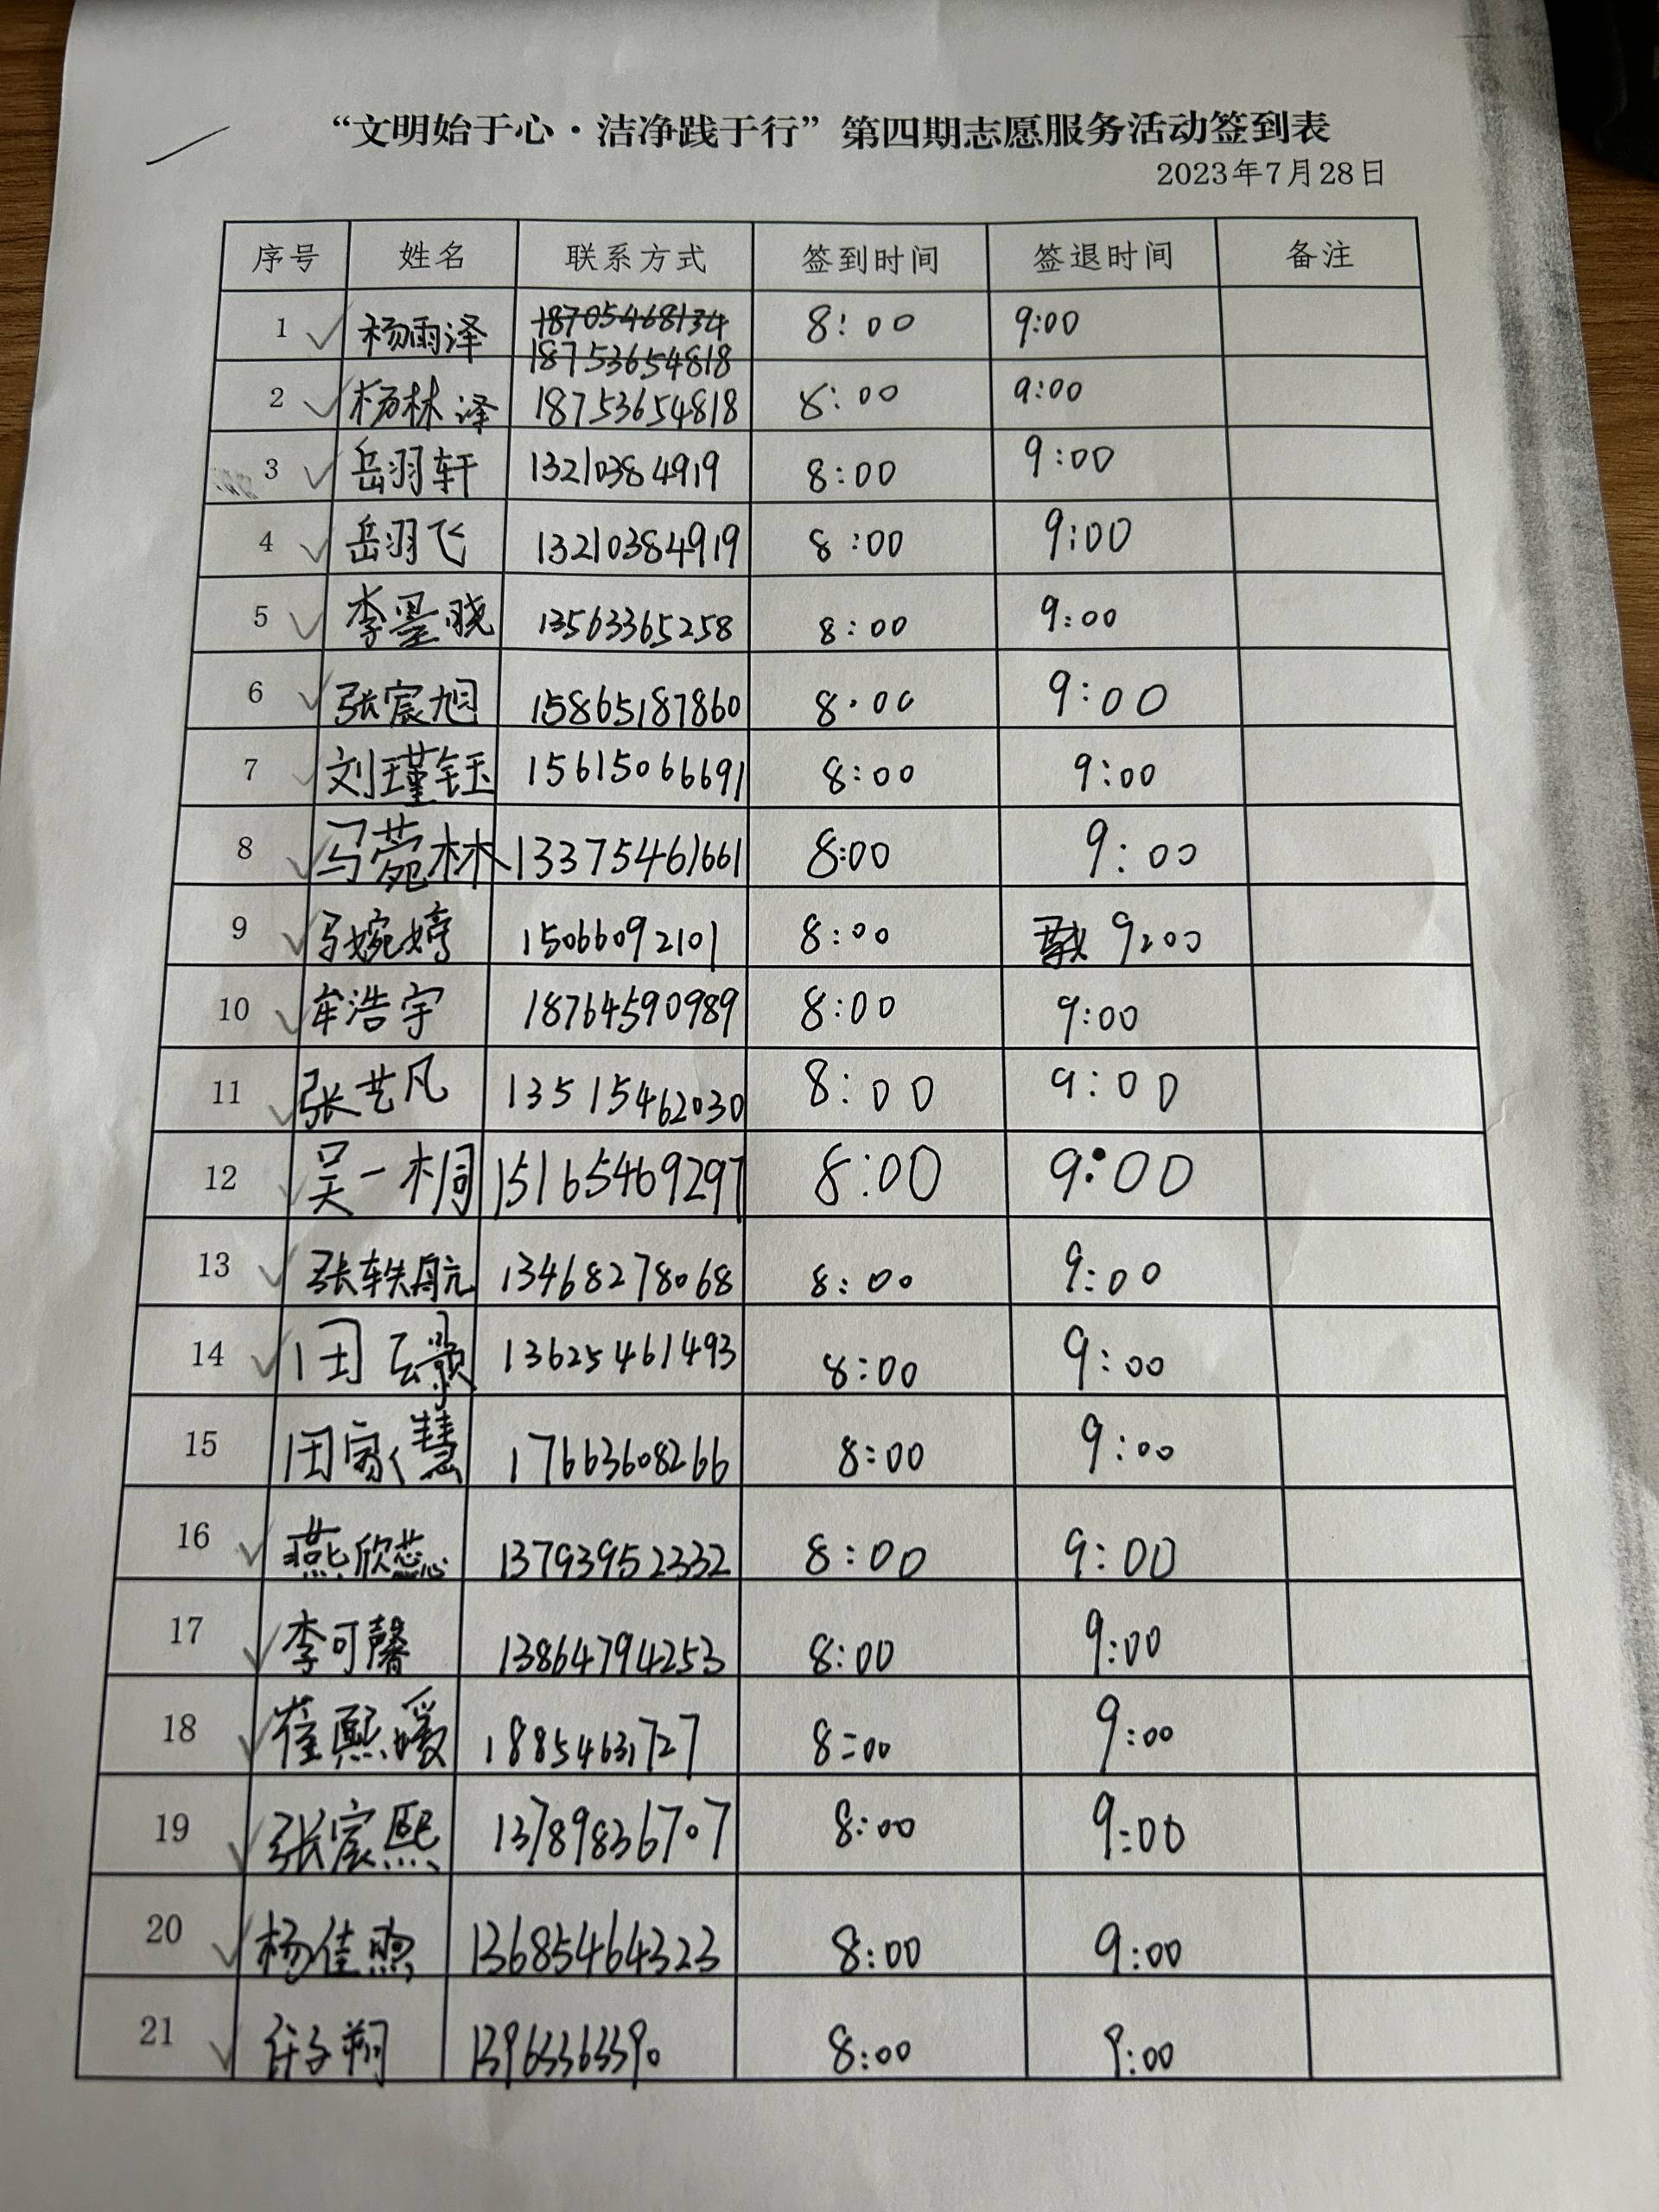 “文明始于心·洁净践于行”第四期志愿服务活动签到表
2023年7月28日
序号 姓名 联系方式 签到时间 签退时间 备注
1 杨雨泽 18705468134 8:00 9:00
18753654818
2 杨林泽 18753654818 8:00 9:00
3 岳羽轩 13210384919 8:00 9:00
4 岳羽飞 13210384919 8:00 9:00
5 李墨晓 13563365258 8:00 9:00
6 张宸旭 15865187860 8:00 9:00
7 刘瑾钰 15615066691 8:00 9:00
8 马菀林 13375461661 8:00 9:00
9 马婉婷 15066092101 8:00 9:00
10 牟浩宇 18764590989 8:00 9:00
11 张艺凡 13515462030 8:00 9:00
12 吴一桐 15165469297 8:00 9:00
13 张轶航 13468278068 8:00 9:00
14 田云颢 13625461493 8:00 9:00
15 田家慧 17663608266 8:00 9:00
16 燕欣蕊 13793952332 8:00 9:00
17 李可馨 13864794253 8:00 9:00
18 崔熙媛 18854631727 8:00 9:00
19 张宸熙 13789836707 8:00 9:00
20 杨佳煦 13685464323 8:00 9:00
21 任子翔 13963363390 8:00 9:00